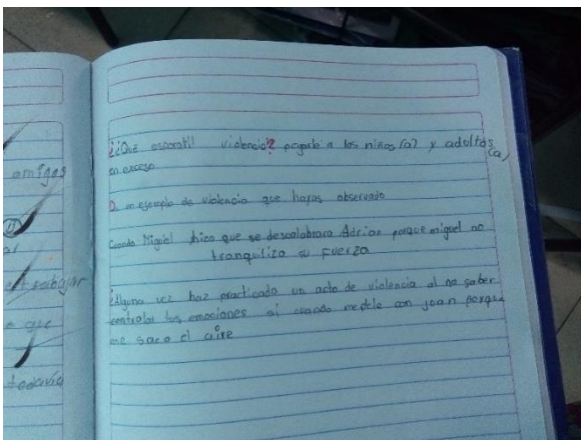 ¿Qué es para ti violencia? pegarle a los niños (a) y adultos (a)
en exceso
D. un ejemplo de violencia que hayas observado
Cuando Miguel hizo que se descalabrara Adrian porque miguel no
tranquilizo su fuerza
¿Alguna vez haz practicado un acto de violencia al no saber
controlar tus emociones si cuando me con joan porque
me saco el aire
amigos
trabajar
que
todavía